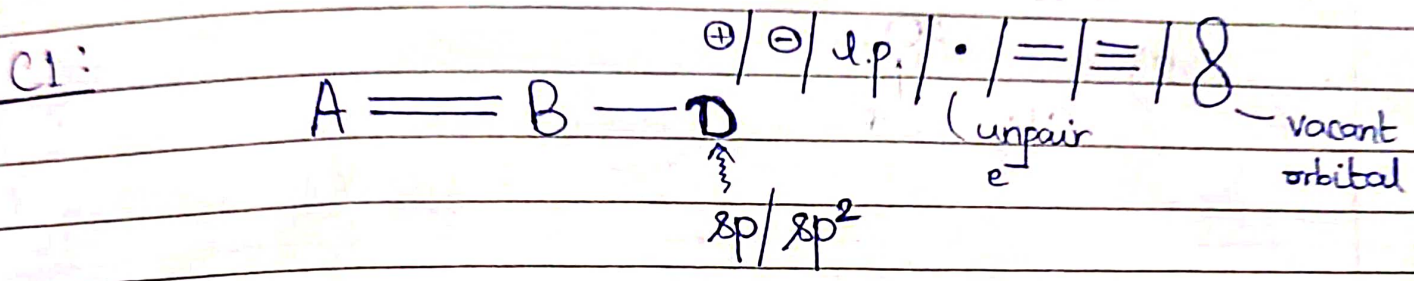 C1:
⊕ / ⊖ / l.p. / • / = / ≡ / 8
A = B — D
(unpair e⁻
vacant orbital
sp/sp²